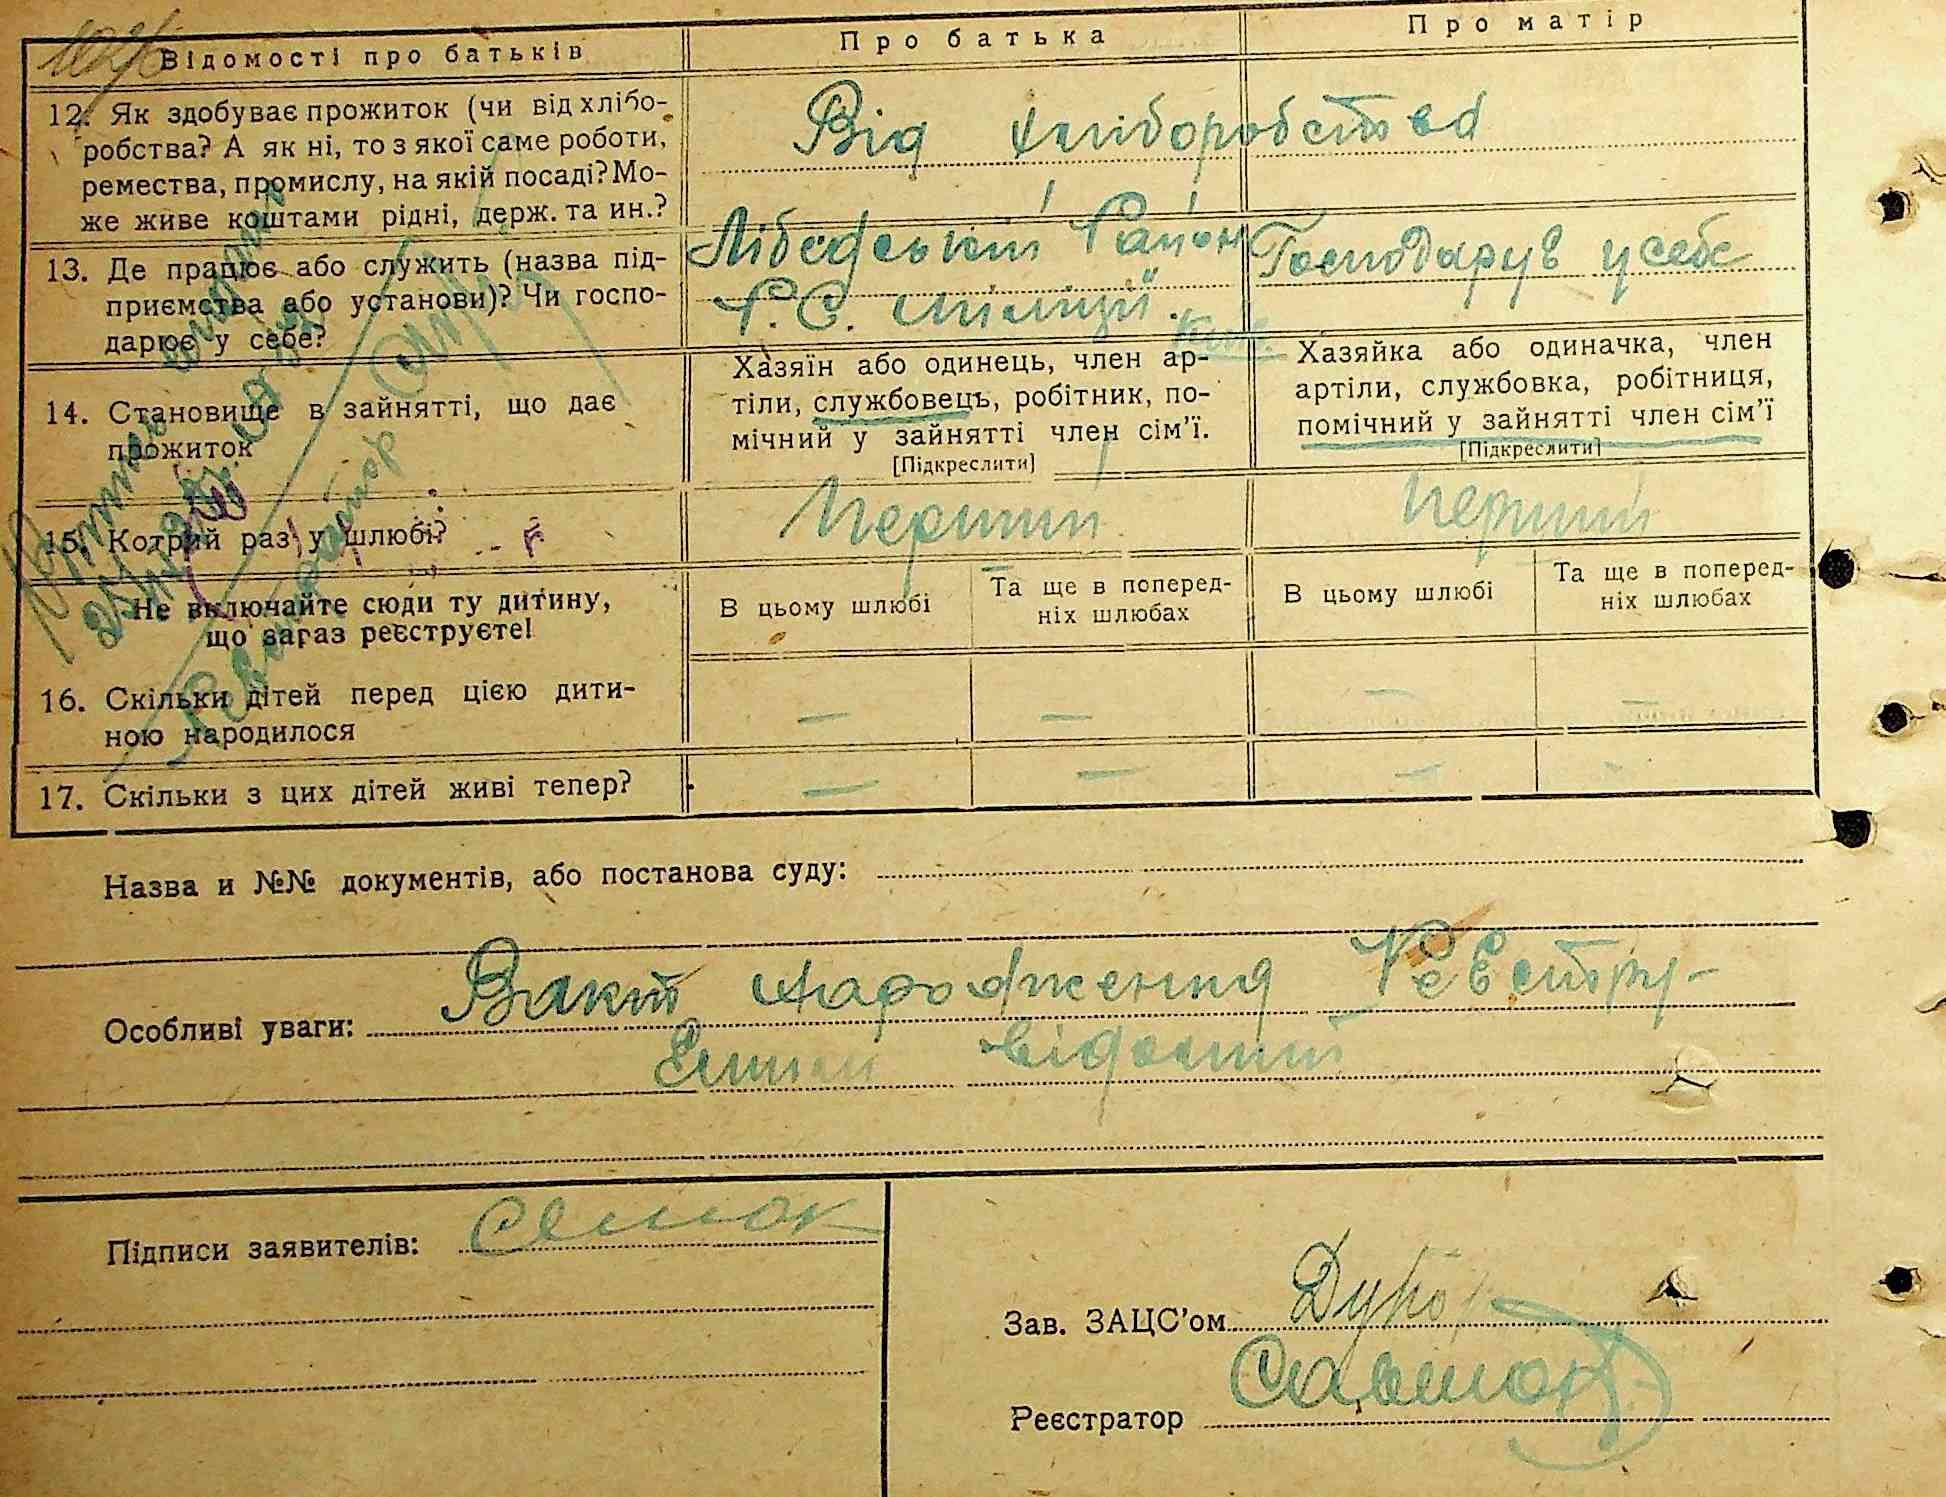 Відомості про батьків
Про батька
Про матір
12. Як здобуває прожиток (чи від хлібо-
робства? А як ні, то з якої саме роботи,
ремества, промислу, на якій посаді? Мо-
же живе коштами рідні, держ. та ин.?
Від хліборобства
13. Де працює або служить (назва під-
приємства або установи)? Чи госпо-
дарює у себе?
Лібедський Район
Р. С. міліції.
Господарув у себе
14. Становище в зайнятті, що дає
прожиток
Хазяїн або одинець, член ар-
тіли, службовець, робітник, по-
мічний у зайнятті член сім'ї.
[Підкреслити]
Хазяйка або одиначка, член
артіли, службовка, робітниця,
помічний у зайнятті член сім'ї
[Підкреслити]
15. Котрий раз у шлюбі?
Перший
Перший
Не включайте сюди ту дитину,
що зараз реєструєте!
В цьому шлюбі
Та ще в поперед-
ніх шлюбах
В цьому шлюбі
Та ще в поперед-
ніх шлюбах
16. Скільки дітей перед цією дити-
ною народилося
— — — —
17. Скільки з цих дітей живі тепер?
— — — -
Назва и №№ документів, або постанова суду:
Особливі уваги:
народження
Підписи заявителів:
Зав. ЗАЦС'ом
Реєстратор